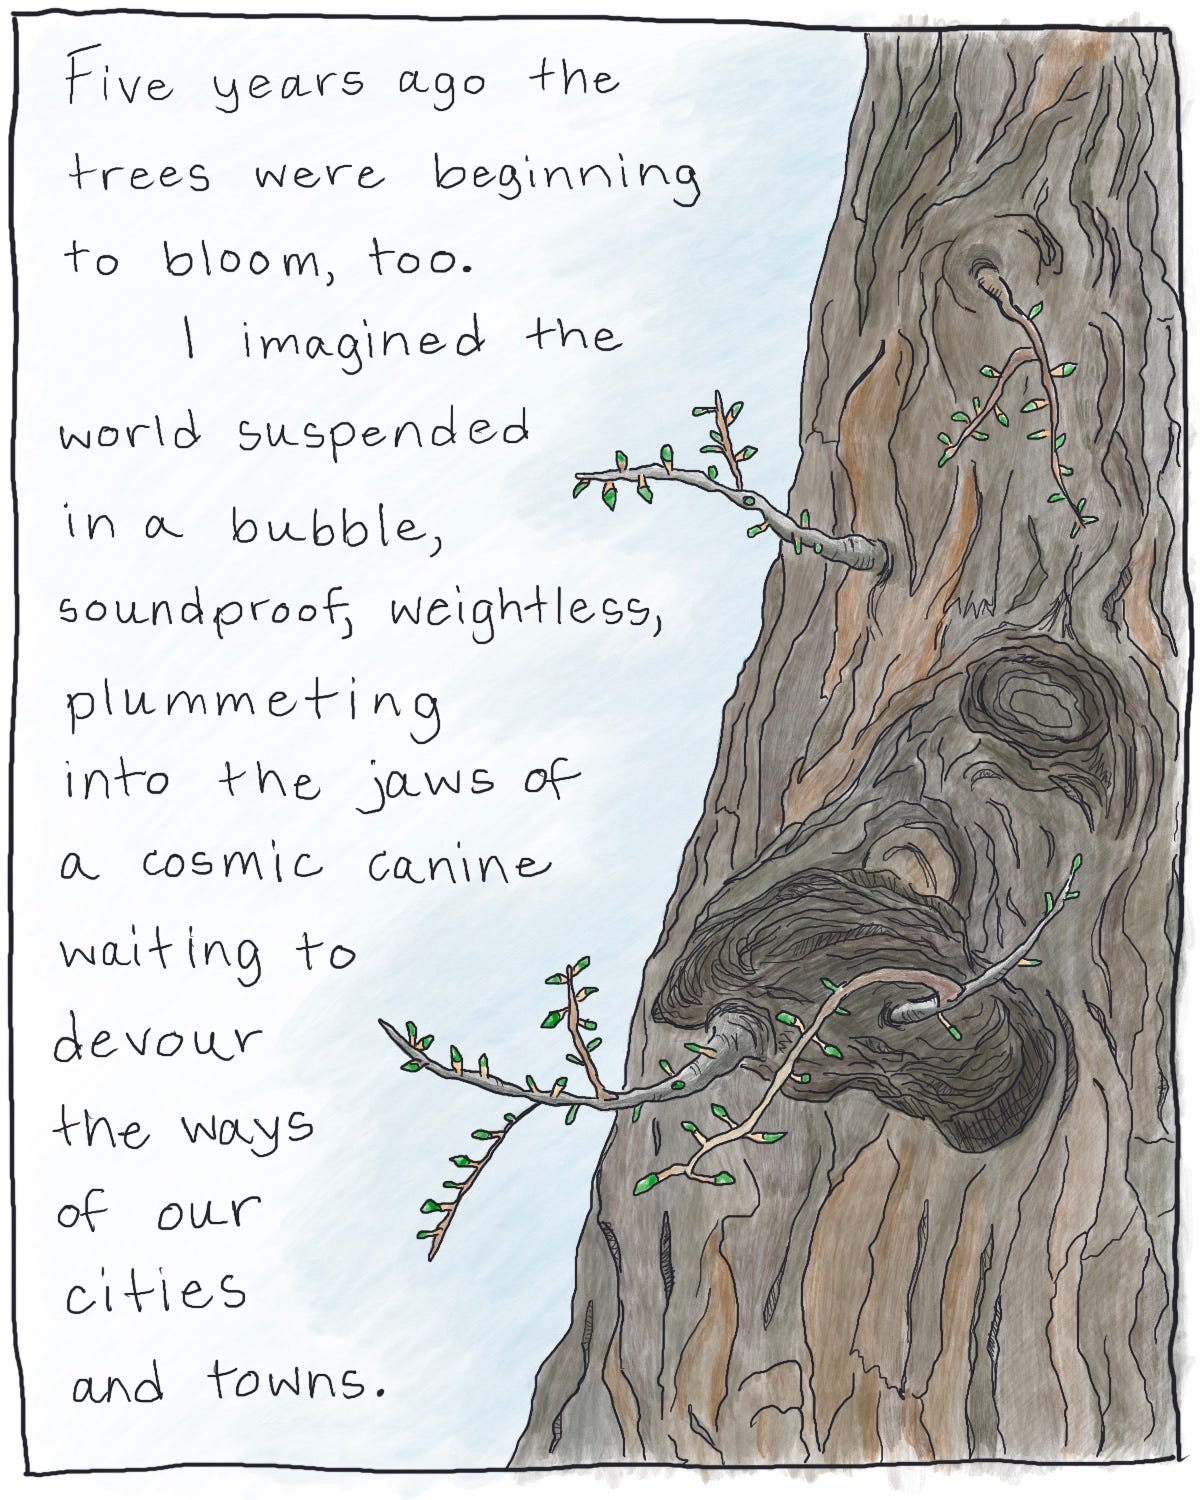 Five years ago the
trees were beginning
to bloom, too.
I imagined the
world suspended
in a bubble,
soundproof, weightless,
plummeting
into the jaws of
a cosmic canine
waiting to
devour
the ways
of our
cities
and towns.